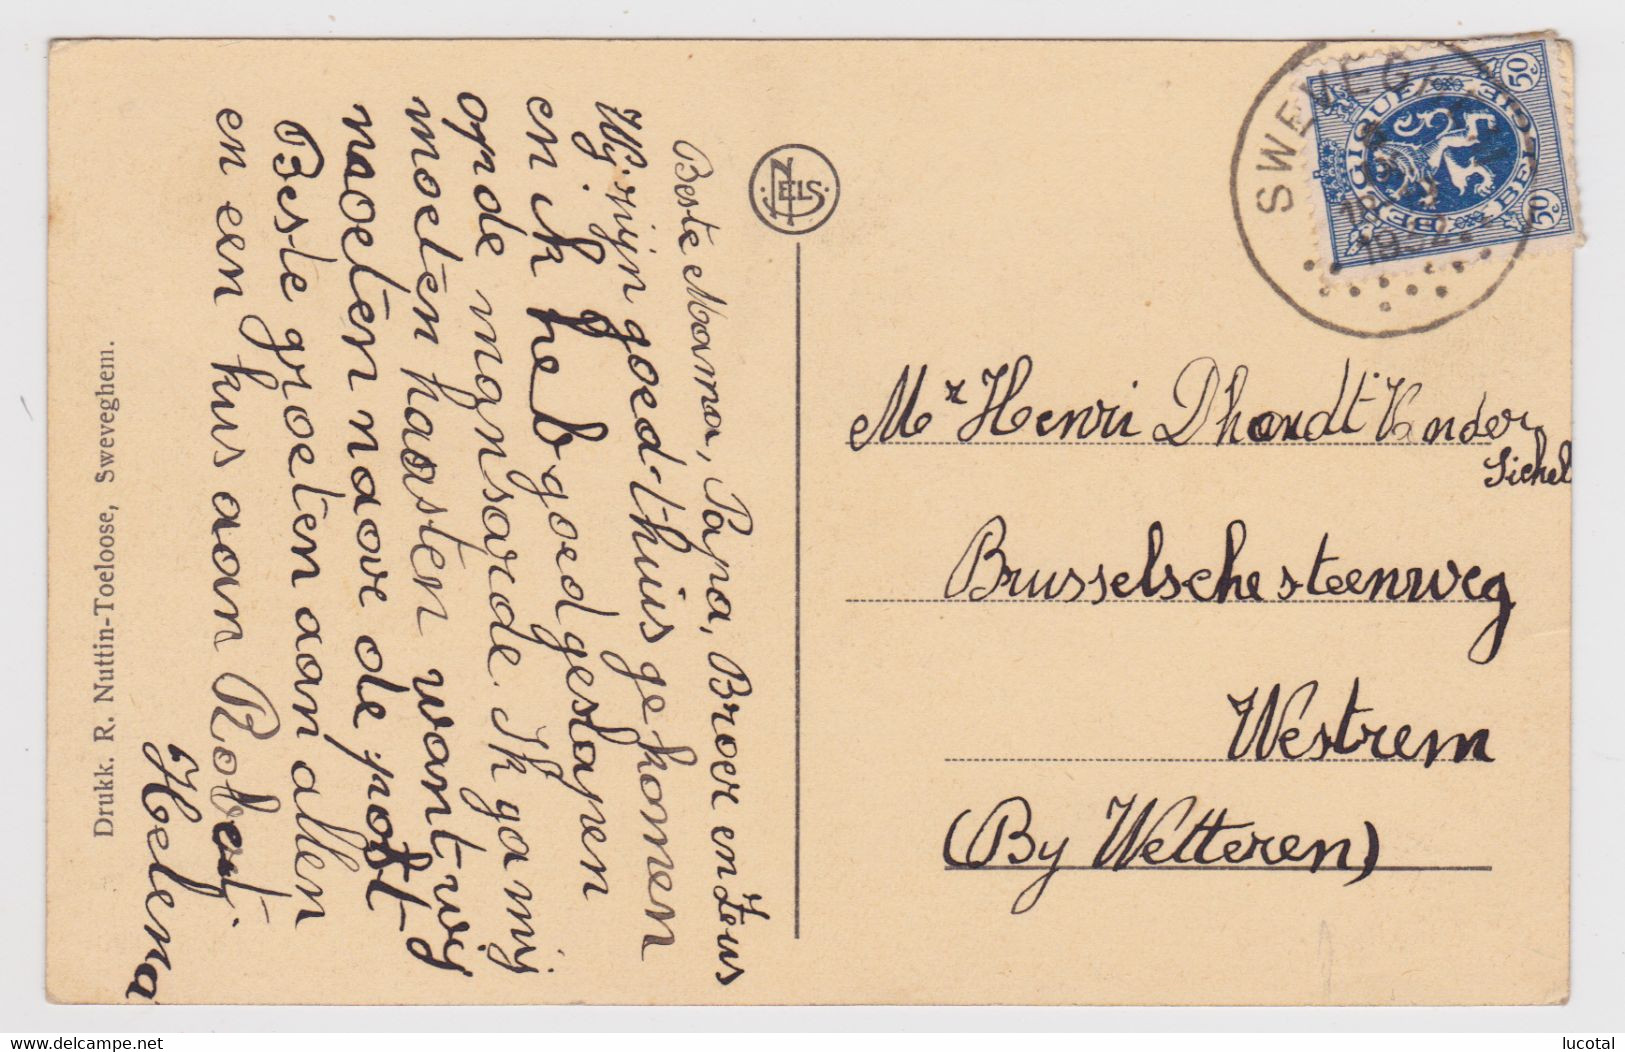 Drukk. R. Nuttin-Toeloose, Sweveghem.
Beste Mama, Papa, Broer en Zeus
Wij zijn goed thuis gekomen
en ik heb goed geslapen
op de mansarde. Ik ga mij
moeten haasten want wij
moeten naar de post
Beste groeten aan allen
en een kus aan Robert.
Helena
NELS
SWEVEG
BELGIQUE
BELGIE
50c
50c
Mr Henri Dhondt Vander
Sichel
Brusselschesteenweg
Westrem
(By Wetteren)
delcampe.net
lucotal